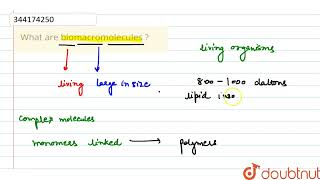 344174250
What are biomacromolecules ?
living organisms
living large in size.
800 - 1000 daltons
lipid
complex molecules
monomers linked → polymers
doubtnut